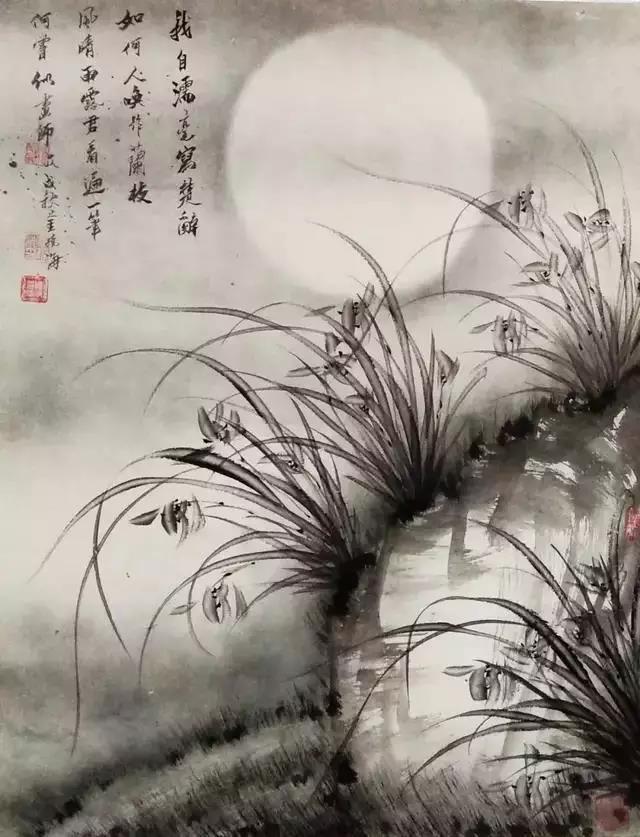 我自濡毫寫楚辭
如何人喚作蘭枝
風晴雨露君看遍一筆
何嘗似畫師